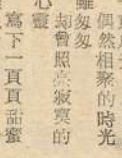 偶然相聚的時光
雖匆匆
却曾照亮寂寞的
心靈
寫下一頁頁甜蜜